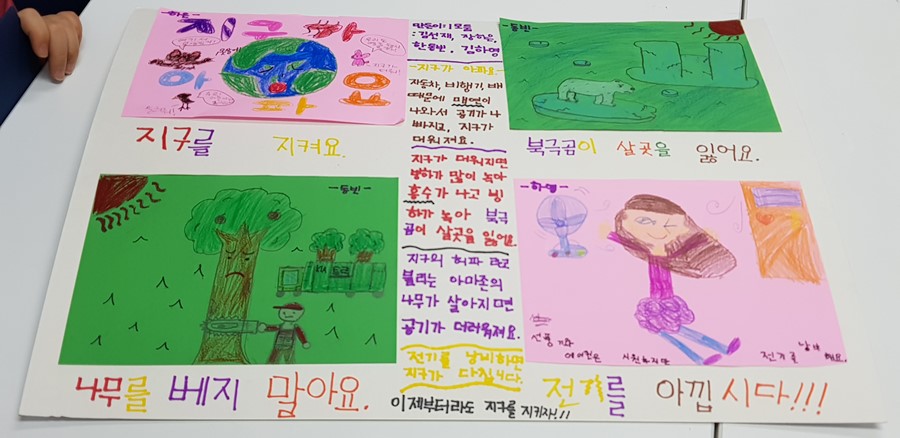 -하은-
지구가
아
파
요
지구를 지켜요.
만든이의 모둠
:김선재, 장하은,
한동빈, 김하영
-지구가 아파요-
자동차, 비행기, 배
때문에 매연이
나와서 공기가 나
빠지고, 지구가
더워져요.
지구가 더워지면
빙하가 많이 녹아
홍수가 나고 빙
하가 녹아 북극
곰이 살곳을 잃어요.
지구의 허파 라고
불리는 아마존의
나무가 살아지면
공기가 더러워져요.
전기를 낭비하면
지구가 다칩니다.
이제부터라도 지구를 지키자!!!
-동빈-
북극곰이 살곳을 잃어요.
-동빈-
나무를 베지 말아요.
-하영-
선풍기와
에어컨은 시원하지만 전기를 낭비 해요.
전력를 아낍시다!!!